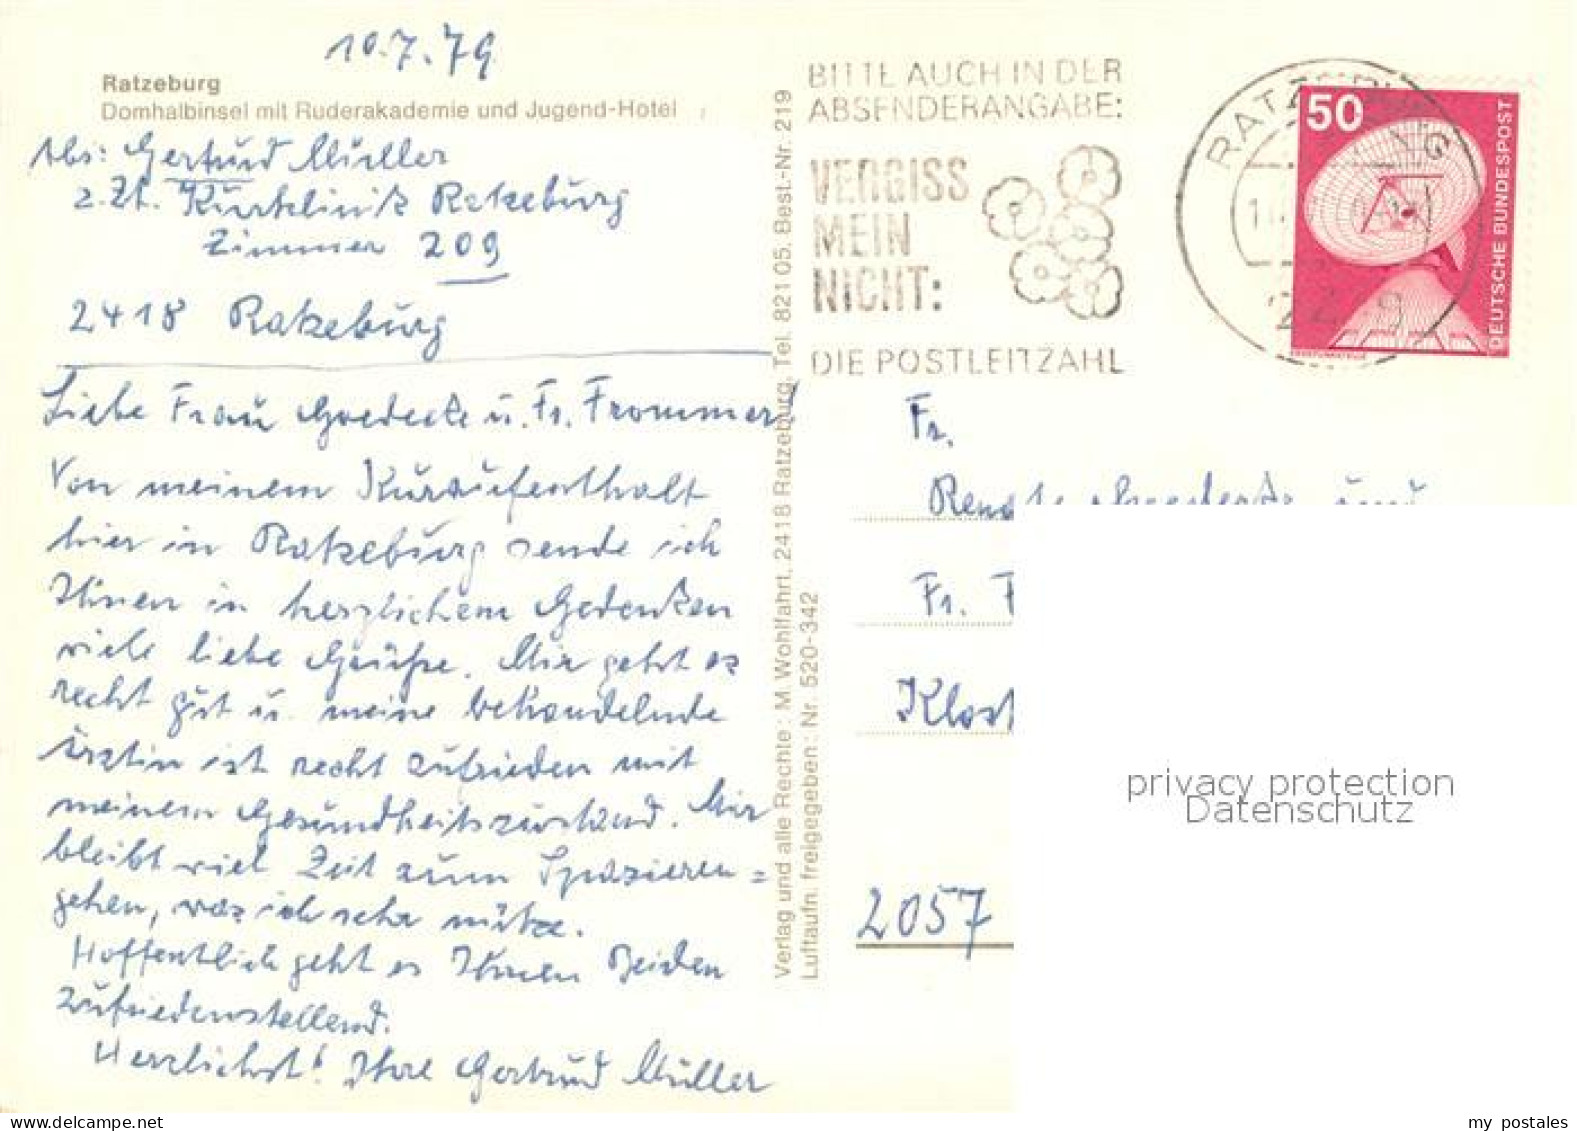 10.7.79
Ratzeburg
Domhalbinsel mit Ruderakademie und Jugend-Hotel
Abs: Gertrud Müller
z. Zt. Kurklinik Ratzeburg
Zimmer 209
2418 Ratzeburg
Liebe Frau Goedecke u. Fr. Frommer!
Von meinem Kuraufenthalt
hier in Ratzeburg sende ich
Ihnen in herzlichem Gedenken
viele liebe Grüße. Mir geht es
recht gut u. meine behandelnde
Ärztin ist recht zufrieden mit
meinem Gesundheitszustand. Mir
bleibt viel Zeit zum Spazieren=
gehen, was ich sehr nütze.
Hoffentlich geht es Ihnen Beiden
zufriedenstellend.
Herzlichst! Ihre Gertrud Müller
Verlag und alle Rechte: M. Wohlfahrt, 2418 Ratzeburg, Tel. 821 05. Best.-Nr. 219
Luftaufn. freigegeben: Nr. 520-342
BITTE AUCH IN DER
ABSENDERANGABE:
VERGISS
MEIN
NICHT:
DIE POSTLEITZAHL
RATZEBURG
50
DEUTSCHE BUNDESPOST
Fr.
Renate Goedecke und
Fr. F
Klost
2057
privacy protection
Datenschutz
my postales